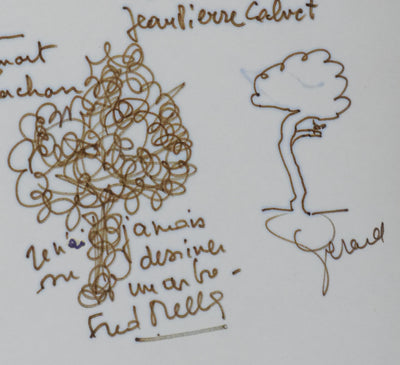 Jean Pierre Calvet
je n'ai jamais
su dessiner
un arbre -
Fred Mella
Gérard